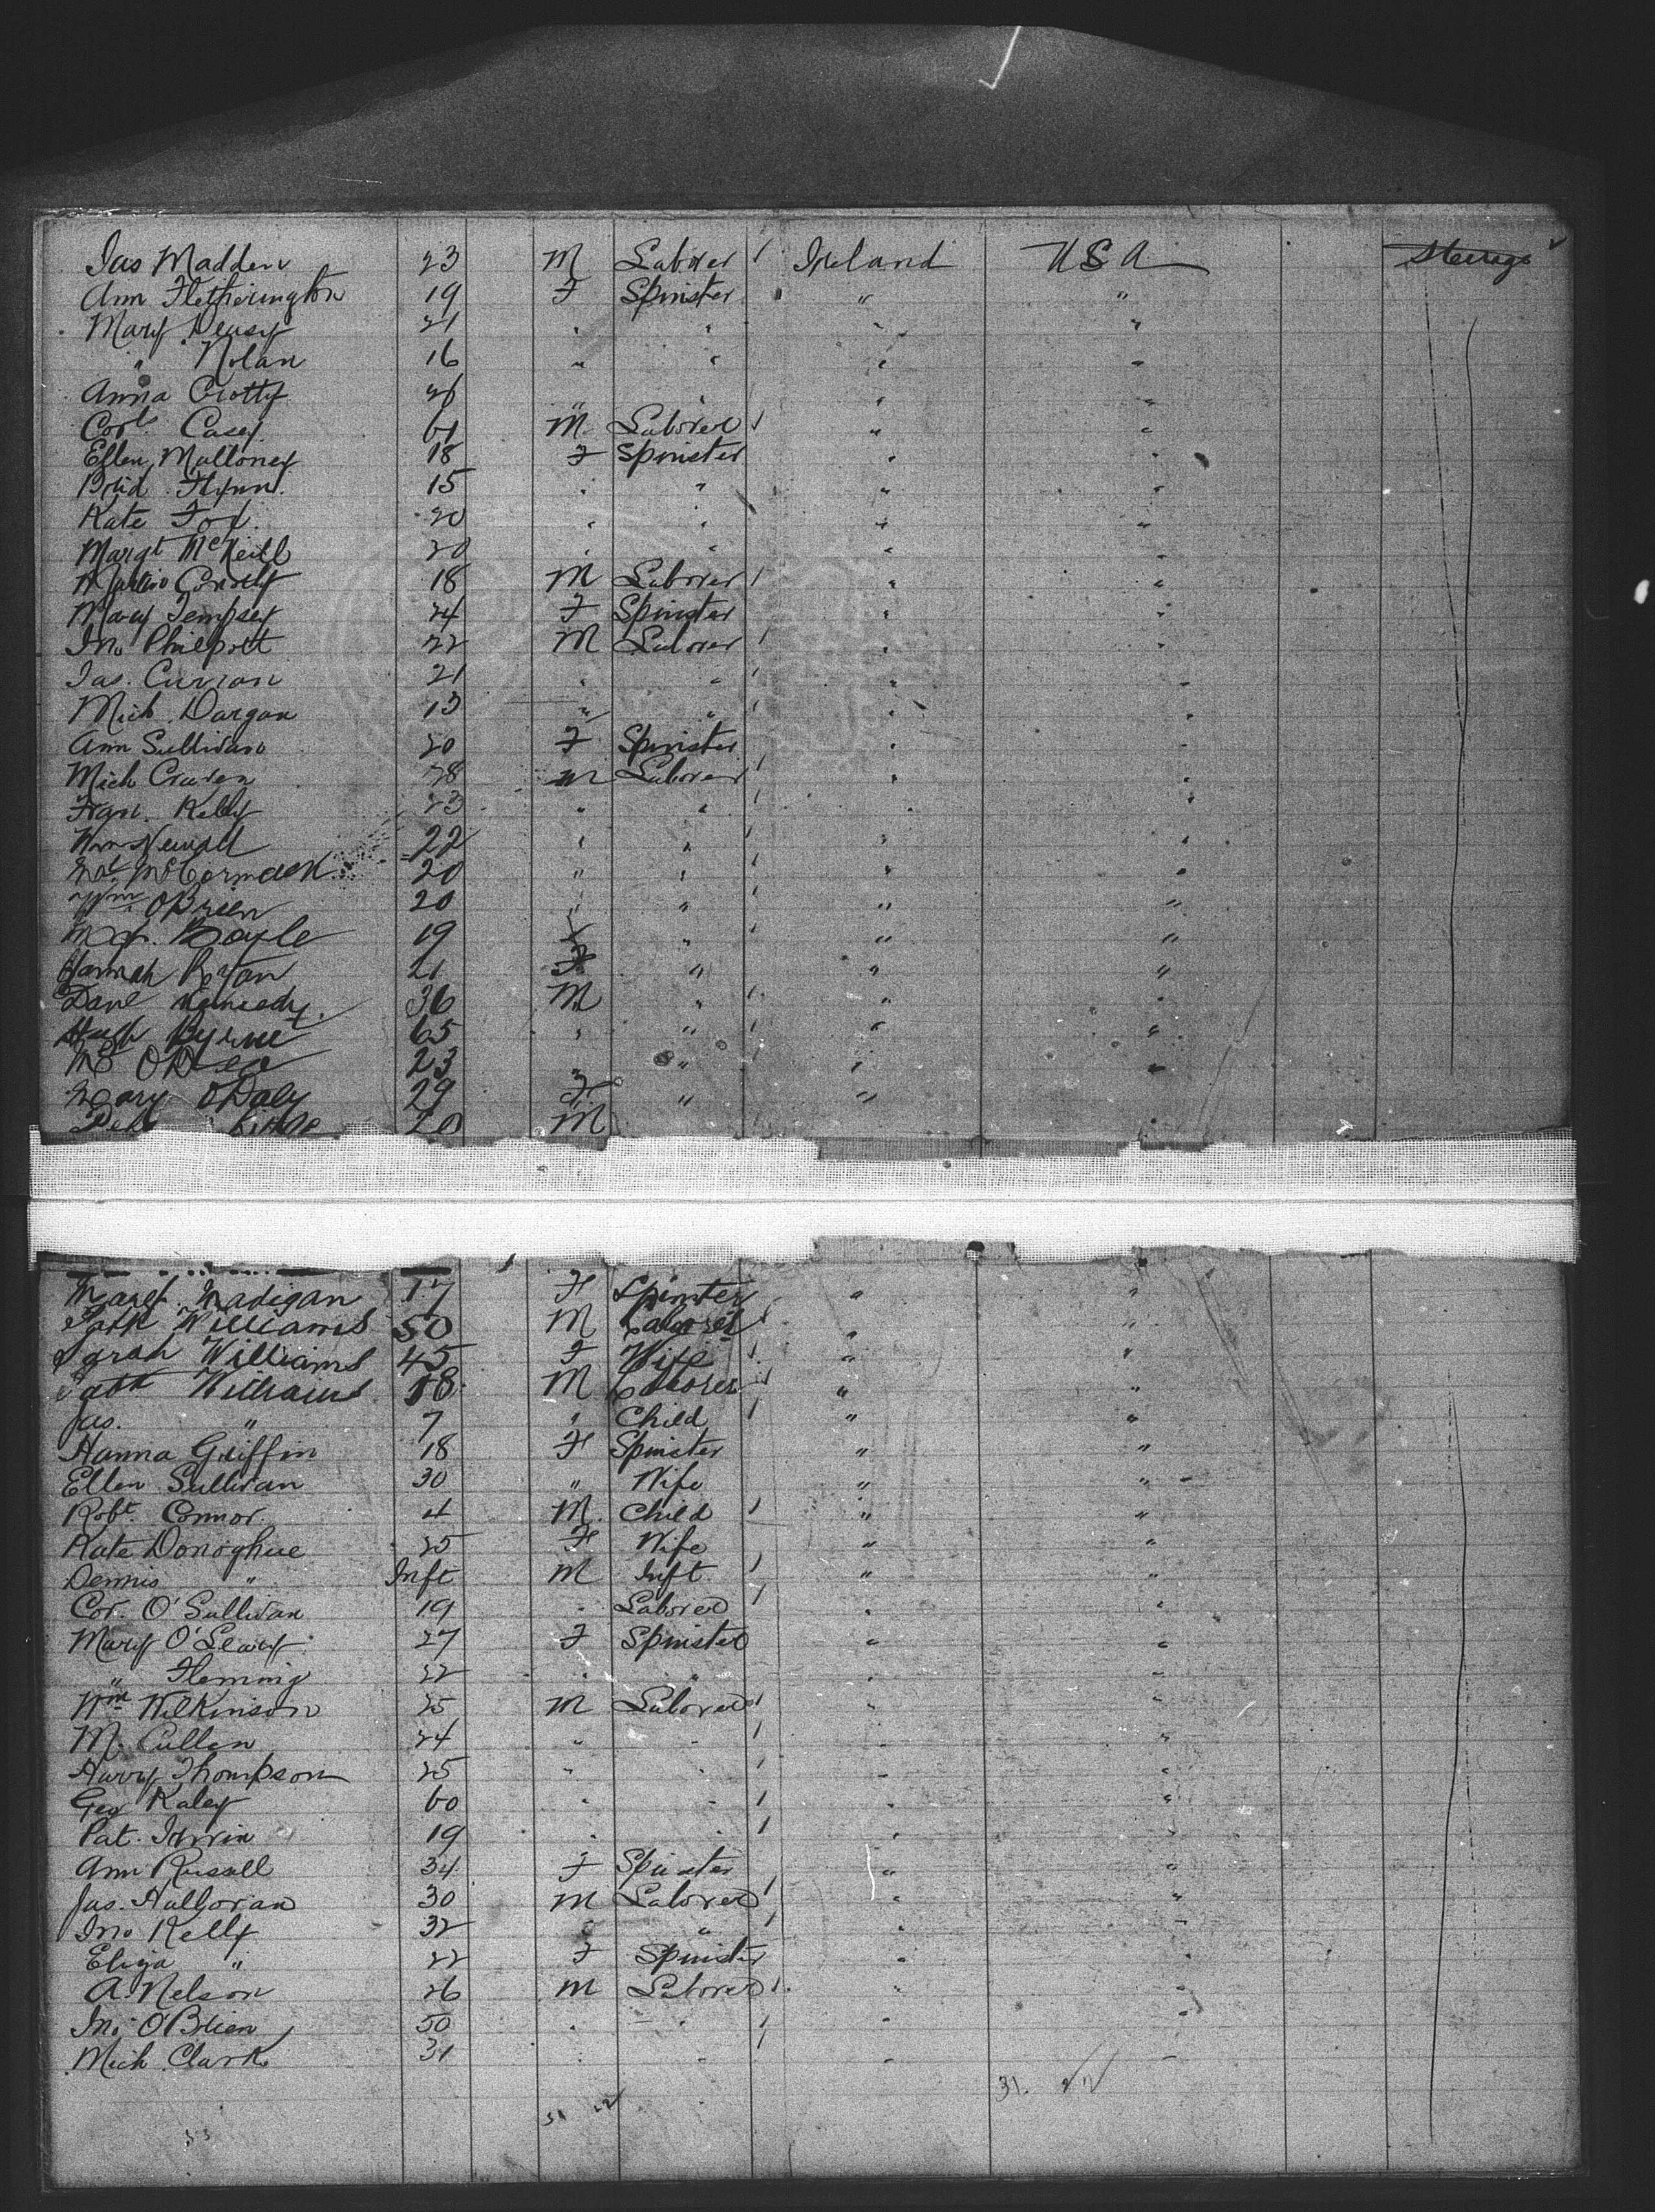 Jas Madden 23 M Laborer Ireland USA Steerage
Ann Hetherington 19 F Spinster " "
Mary Deasy 21 " " " "
" Nolan 16 " " " "
Anna Crotty 26 " " " "
Corls Casey 61 M Laborer " "
Ellen Malloney 18 F Spinster " "
Brid. Flynn 15 " " " "
Kate Fox 20 " " " "
Margt McNeill 20 " " " "
Crotty 18 M Laborer " "
Mary Dempsey 24 F Spinster " "
Jno Philpott 22 M Laborer " "
Jas. Curran 21 " " " "
Mich. Dargan 13 " " " "
Ann Sullivan 20 F Spinster " "
Mich Craven 28 M Laborer " "
Fran. Kelly 23 " " " "
Wm Newall 22 " " " "
McCormack 20 " " " "
Wm OBrien 20 " " " "
Boyle 19 " " "
Hannah Ryan 21 F " " "
Danl Kennedy 36 M " " "
Hugh Byrne 65 " " " "
23 " " " "
Mary ODaly 29 F " "
20 M
Mary Madigan 17 F Spinster " "
Patk Williams 50 M Laborer " "
Sarah Williams 45 F Wife " "
Patk Williams 18 M Laborer " "
Jas. " 7 " Child " "
Hanna Griffin 18 F Spinster " "
Ellen Sullivan 30 " Wife " "
Robt. Connor 4 M. Child " "
Kate Donoghue 25 F Wife " "
Dennis " Inft M Inft " "
Cor. O'Sullivan 19 " Laborer " "
Mary O'Leary 27 F Spinster " "
" Fleming 22 " " " "
Wm Wilkinson 25 M Laborer " "
M. Cullen 24 " " " "
Harry Thompson 25 " " " "
Geo Kaley 60 " " " "
Pat. Irwin 19 " " " "
Ann Russell 34 F Spinster " "
Jas. Halloran 30 M Laborer " "
Jno Kelly 32 " " " "
Eliza " 22 F Spinster " "
A. Nelson 26 M Laborer " "
Jno O'Brien 50 " " " "
Mich Clark 31 " " " "
31.